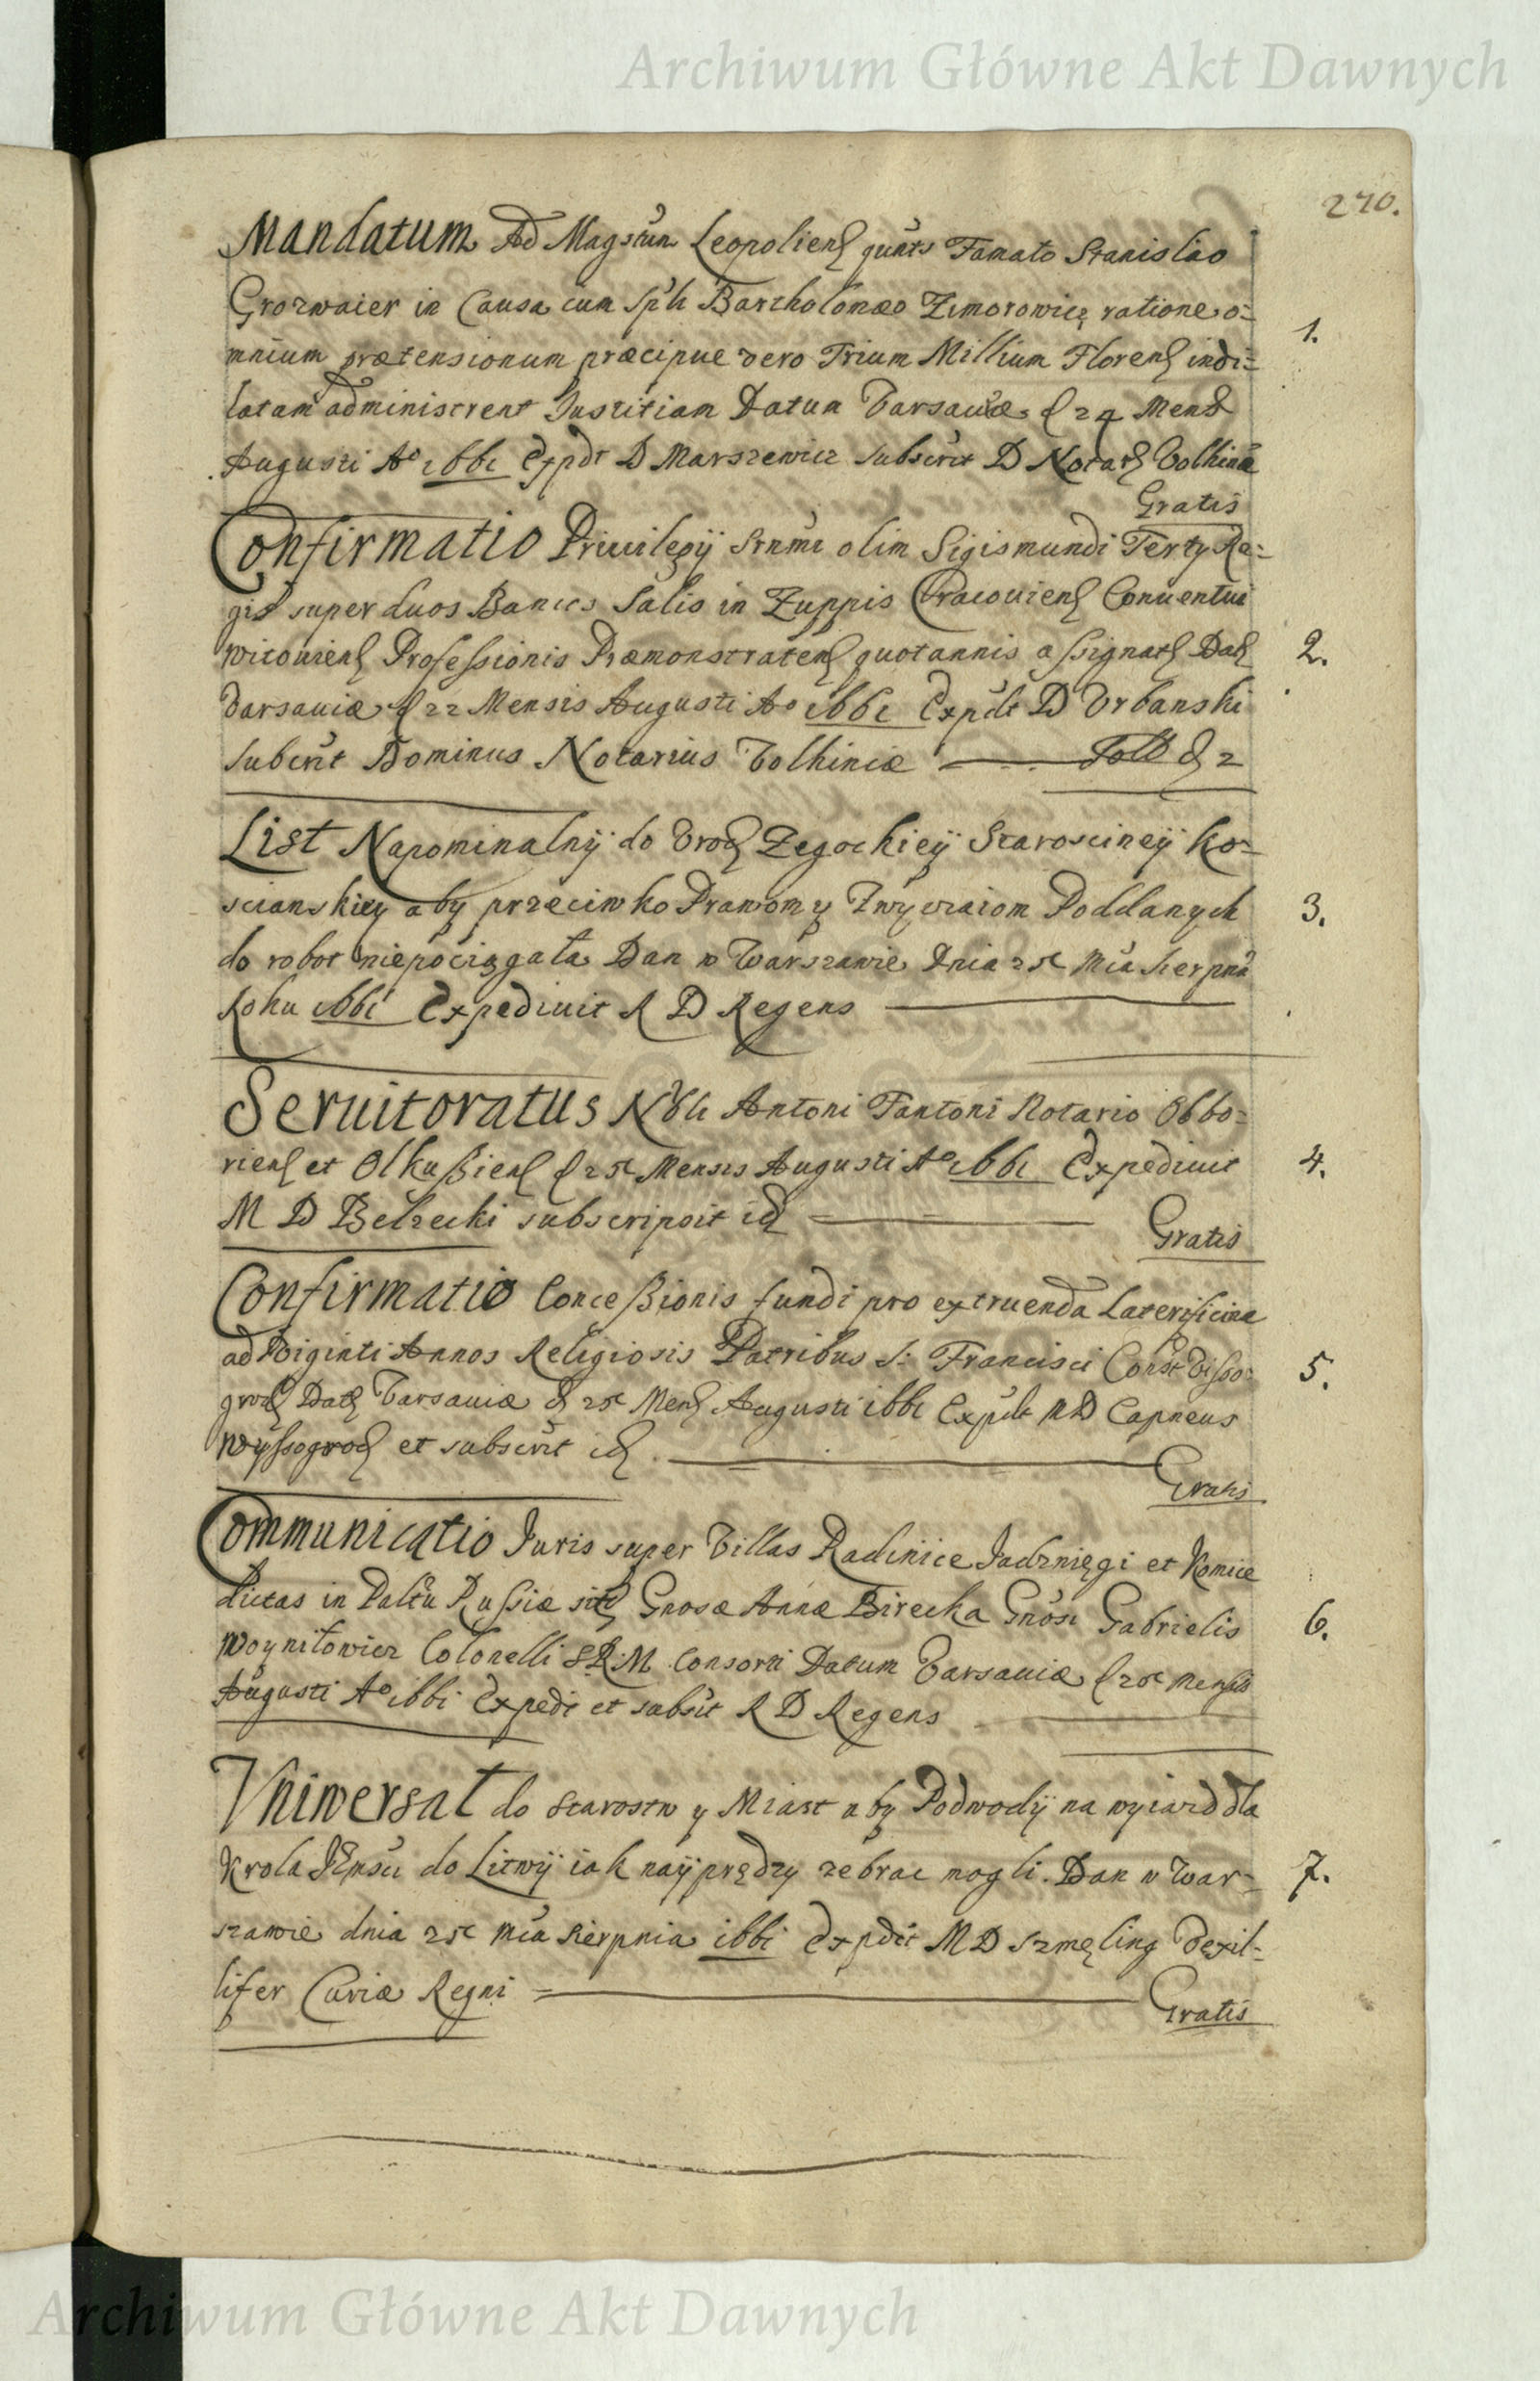 Archiwum Główne Akt Dawnych
270.
Mandatum Ad Magstum Leopoliens quats Famato Stanislao
Grozwaier in Causa cum Spli Bartholomæo Zimorowicz ratione o-
mnium prætensionum præcipue vero Trium Millium Florens indi-
latam administrent Justitiam Datum Varsaviæ d 24 Mens
Augusti Ao 1661 Expdt D Marszewicz subscrit D Notars Volhiniæ
Gratis
1.
Confirmatio Privilegij Srnmi olim Sigismundi Tertij Re-
gis super duos Bancos Salis in Zuppis Cracoviens Conventui
Witoviens Professionis Præmonstratens quotannis assignats Dats
Varsaviæ d 22 Mensis Augusti Ao 1661 Expdt D Urbanski
Subcrit Dominus Notarius Volhiniæ
2.
List Napominalnÿ do Urod Zegockieÿ Staroscineÿ Ko-
scianskiey aby przeciwko Prawom y Zwyczaiom Poddanych
do robot niepociągała Dan w Warszawie Dnia 25 Mca sierpnia
Roku 1661 Expedivit R D Regens
3.
Servitoratus Nbli Antoni Fantoni Notario Obbo-
riens et Olkußiens d 25 Mensis Augusti Ao 1661 Expedivit
M D Belzecki subscripsit id
Gratis
4.
Confirmatio Conceßionis fundi pro extruenda Laterificina
ad Viginti Annos Religiosis Patribus S: Francisci Const Visso-
grods Dats Varsaviæ d 25 Mens Augusti 1661 Expdt MD Capneus
Wyssogrod et subscrit id
Gratis
5.
Communicatio Juris super Villas Radinice Jadznięgi et Konice
dictas in Paltu Russiæ sits Gnosæ Annæ Birecka Gnosi Gabrielis
Woyniłowicz Colonelli S.R.M. Consorti Datum Varsaviæ d 25 Mensis
Augusti Ao 1661 Expedt et subsit R D Regens
6.
Vniwersał do Starostw y Miast aby Podwodÿ na wyiazd dla
Krola JEMści do Litwÿ iak nayprędzy zebrac mogli. Dan w War-
szawie dnia 25 Mca Sierpnia 1661 Expdit MD Szmeling Vexil-
lifer Curiæ Regni
Gratis
7.
Archiwum Główne Akt Dawnych